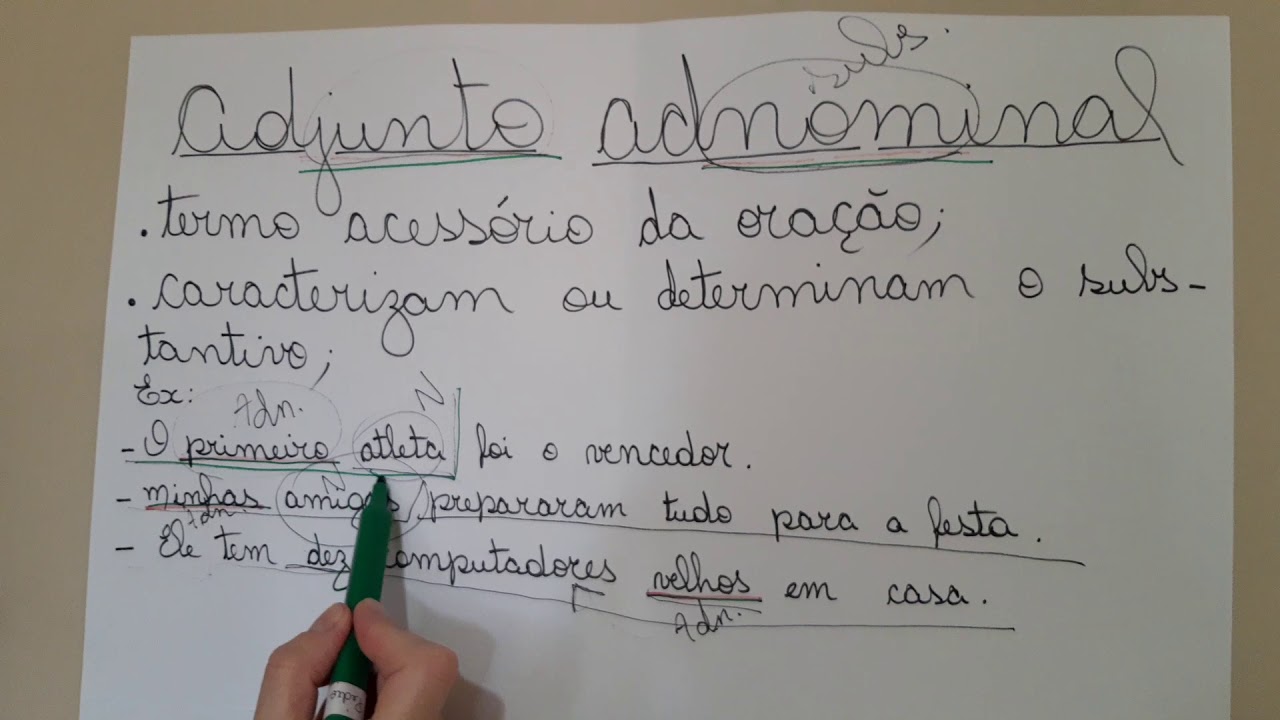 subs.
Adjunto adnominal
. termo acessório da oração;
. caracterizam ou determinam o subs-
tantivo;
Ex:
Adn. N
- O primeiro atleta foi o vencedor.
N
- minhas amigas prepararam tudo para a festa.
Adn.
- Ele tem dez computadores velhos em casa.
Adn.